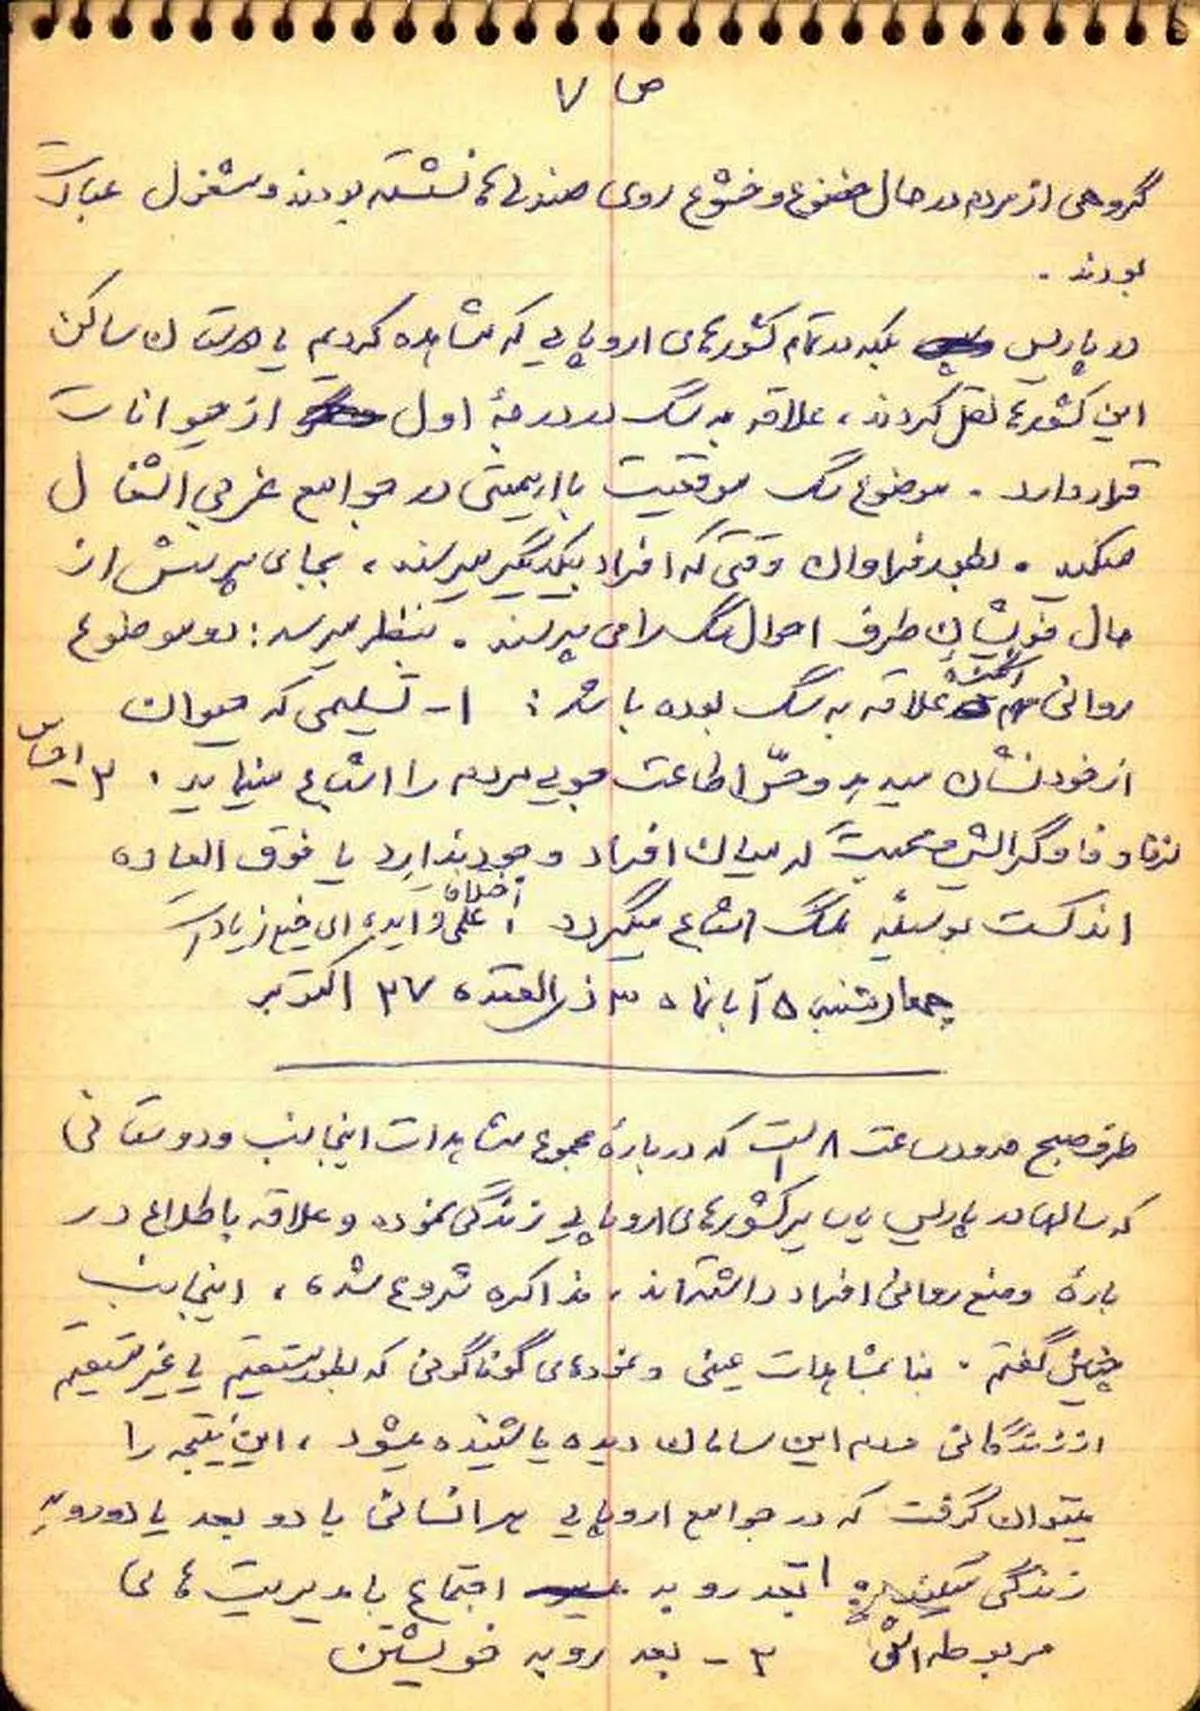 ص ۷
گروهی از مردم در حال خضوع و خشوع روی صندلی‌ها نشسته بودند و مشغول عبادت
بودند .
در پاریس بلکه در تمام کشورهای اروپایی که مشاهده کردیم یا دوستان ساکن
این کشورها نقل کردند ، علاقه به سگ در درجهٔ اول از حیوانات
قرار دارد . موضوع سگ موقعیت با اهمیتی در جوامع غربی اشغال
میکند . بطور فراوان وقتی که افراد بیکدیگر میرسند ، بجای پرسش از
حال خویشان طرف احوال سگ را می پرسند . بنظر میرسد : دو موضوع
روانی علاقه به سگ بوده باشد : ۱ - تسلیمی که حیوان
از خود نشان میدهد و حسّ اطاعت جویی مردم را اشباع مینماید . ۲ - احساس
وفا و گرایش و محبت که میان افراد وجود ندارد یا فوق العاده
اندکست بوسیلهٔ سگ اشباع میگردد . اخلاق علمی و ایده ای خیلی زیاد است
چهارشنبه ۵ آبانماه ۳ ذی القعده ۲۷ اکتبر
طرف صبح حدود ساعت ۸ است که دربارهٔ مجموع مشاهدات اینجانب و دوستانی
که سالها در پاریس یا سایر کشورهای اروپایی زندگی نموده و علاقه باطلاع در
بارهٔ وضع روانی افراد داشته‌اند ، مذاکره شروع شده ، اینجانب
چنین گفتم . بنا بمشاهدات عینی و نمودهای گوناگونی که بطور مستقیم یا غیر مستقیم
از زندگانی مردم این سامان دیده یا شنیده میشود ، این نتیجه را
میتوان گرفت که در جوامع اروپایی هر انسانی با دو بعد یا دو رویه
زندگی میکند ۱ - بعد رو به اجتماع با مدیریت های
مربوطه اش ۲ - بعد رو به خویشتن